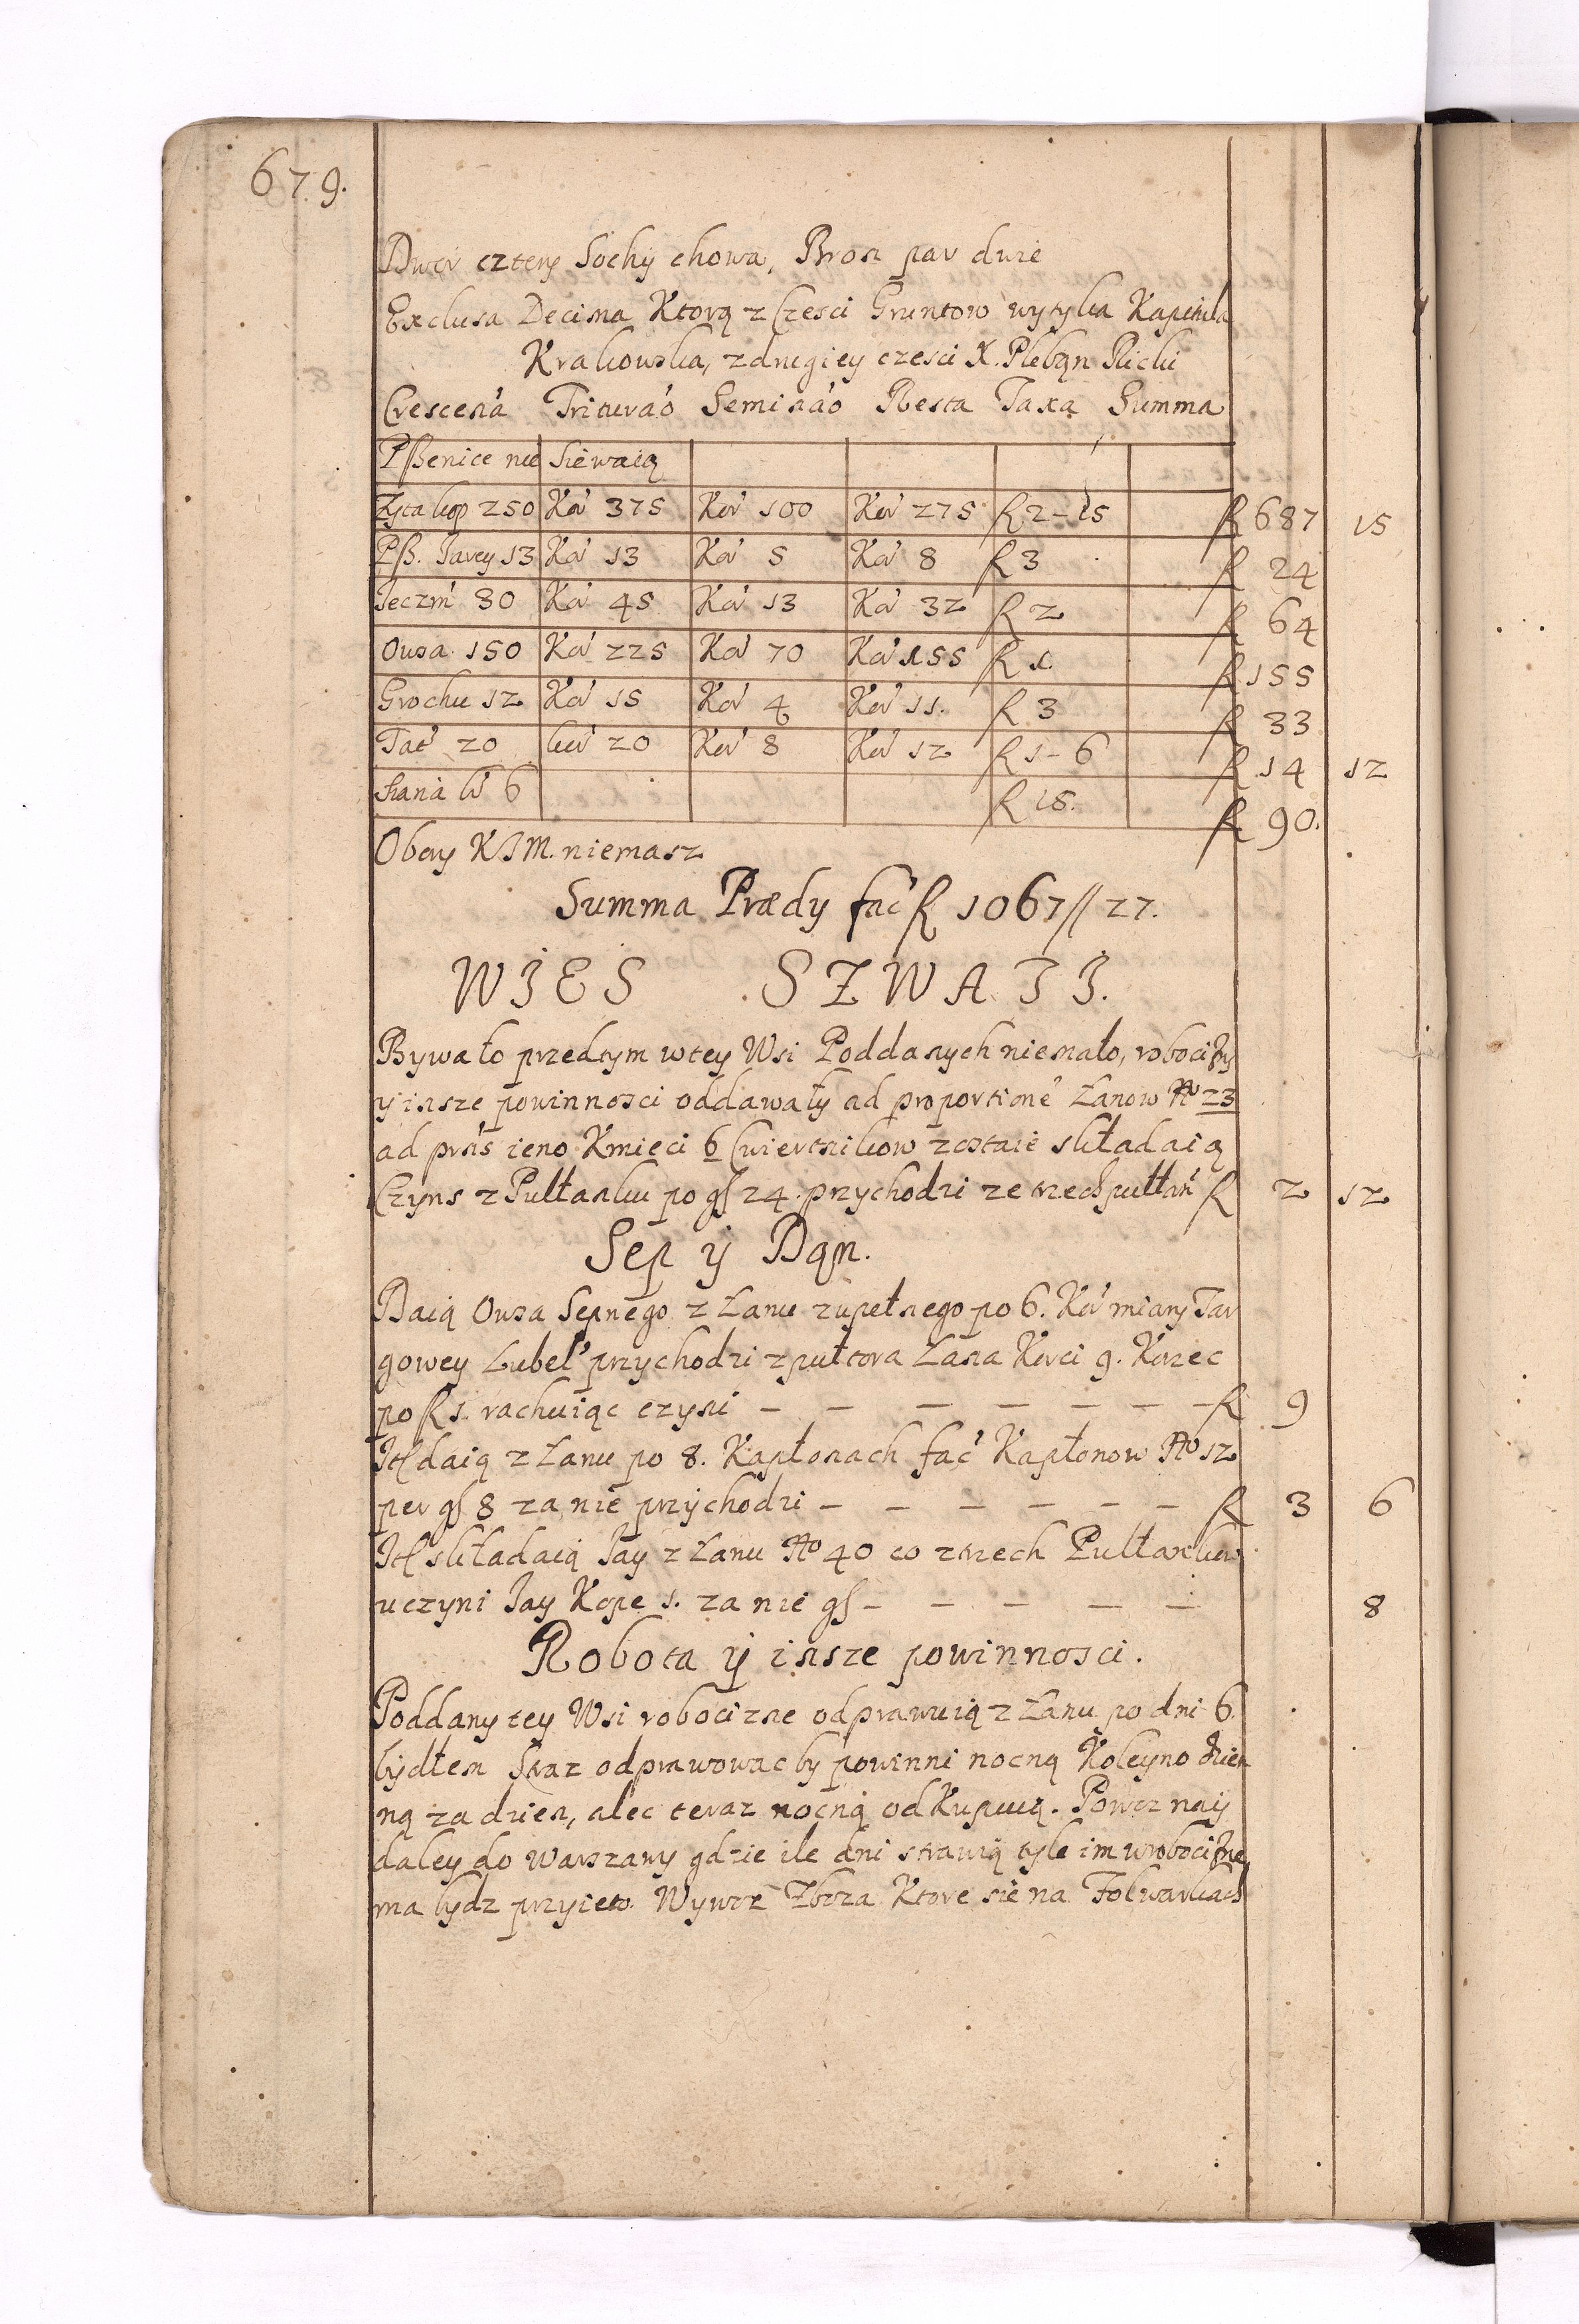 679.
Dwor cztery Sochy chowa, Bron par dwie
Exclusa Decima Ktorą z Części Gruntow wytyka Kapituła
Krakowska, z drugiey czesci X. Pleban Ricki
Crescena Triturao Seminao Resta Taxa Summa
Pßenice nie Siewaią
Zyta kop 250 Kor 375 Kor 100 Kor 275 fl 2-15 fl 687 15
Pß. Jarey 13 Kor 13 Kor 5 Kor 8 fl 3 fl 24
Jeczm 30 Kor 45 Kor 13 Kor 32 fl 2 fl 64
Owsa 150 Kor 225 Kor 70 Kor 155 fl 1. fl 155
Grochu 12 Kor 15 Kor 4 Kor 11. fl 3 fl 33
Tat 20 kor 20 Kor 8 Kor 12 fl 1-6 fl 14 12
Siana 6 fl 15. fl 90.
Obory KJM. niemasz
Summa Prædy fac fl 1067 // 27.
WJES SZWATJ.
Bywało przedtym wtey Wsi Poddanych niemało, robocizny
y insze powinnosci oddawały ad proportione Łanow No 23
ad prns ieno Kmieci 6 Cwiertnikow zostaie składaią
Czyns z Pułłanku po gł 24. przychodzi ze trzech pułłan fl 2 12
Sep ÿ Dan.
Daią Owsa Sepnego z Łanu zupełnego po 6. Kor miary Tar
gowey Lubel' przychodzi z pułtora Łana Korci 9. Korzec
po fl 1. rachuiąc czyni – – – – – – – fl 9
Itł daią z Łanu po 8. Kapłonach fac Kapłonow No 12
per gł 8 za nie przychodzi – – – – – – fl 3 6
Itł składaią Jay z Łanu No 40 co z trzech Pułłankow
uczyni Jay Kope 1. za nie gł – – – – – 8
Robota ÿ insze powinnosci.
Poddany tey Wsi robocizne odprawuią z Łanu po dni 6.
bydłem Straz odprawowac by powinni nocną Koleyno dzien
ną za dzien, alec teraz nocną odkupuią. Powoz nay
daley do Warszawy gdzie ile dni strawią tyle im w robocizne
ma bydz przyieto. Wywoz Zboza Ktore sie na Folwarkach